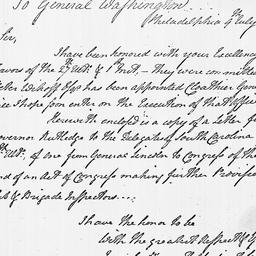 To General Washington
Philadelphia 4th July
Sir,
I have been honored with your Excellency
favors of the 27th Ult. & 1st Inst. — They were committed
Peter Esqr. has been appointed Cloathier Gener
I hope soon enter on the Execution of that Office
Herewith enclosed is a copy of a Letter f
Governor Rutledge to the Delegates of South Carolina
Ult. of one from General Lincoln to Congress of the
and of an Act of Congress making further Provision
& Brigade Inspectors . . .
I have the honor to be
With the greatest Respect &